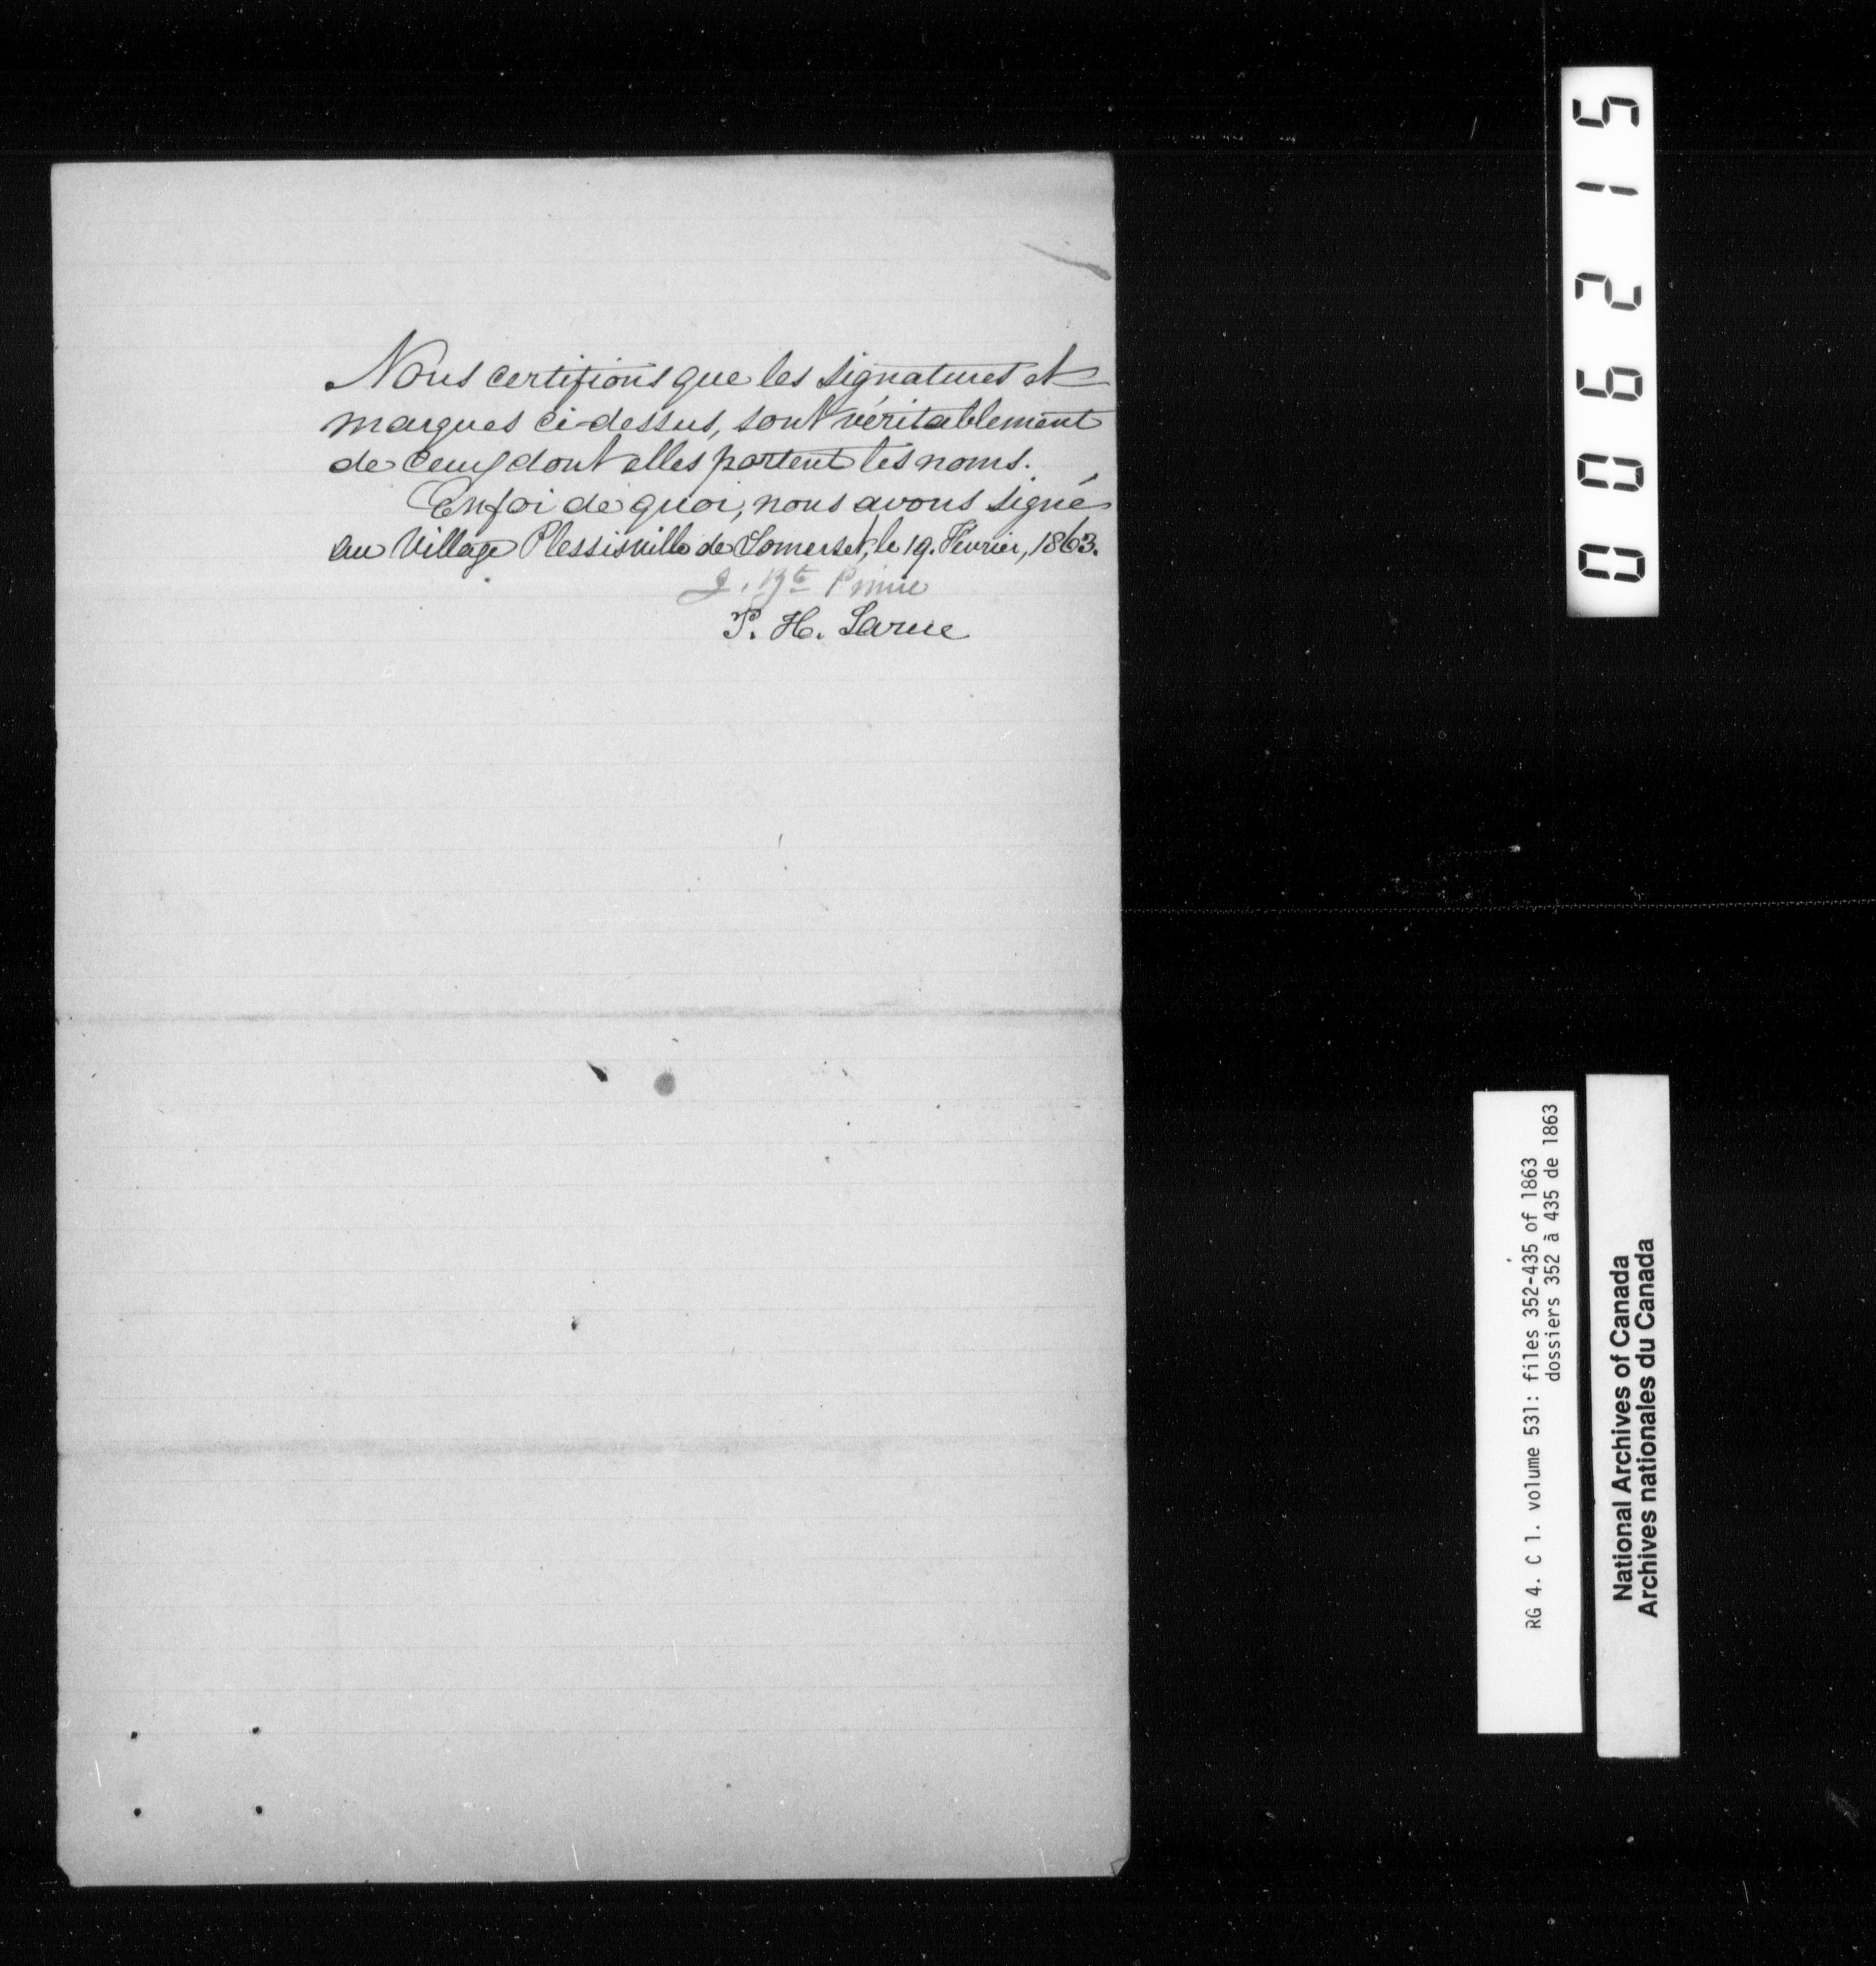 Nous certifions que les signatures et
marques ci-dessus, sont véritablement
de ceux dont elles portent les noms.
En foi de quoi, nous avons signé
au Village Plessisville de Somerset, le 19. Février, 1863.
J. Bte Prince
P. H. Larue
006215
RG 4. C 1. volume 531: files 352-435 of 1863
dossiers 352 à 435 de 1863
National Archives of Canada
Archives nationales du Canada